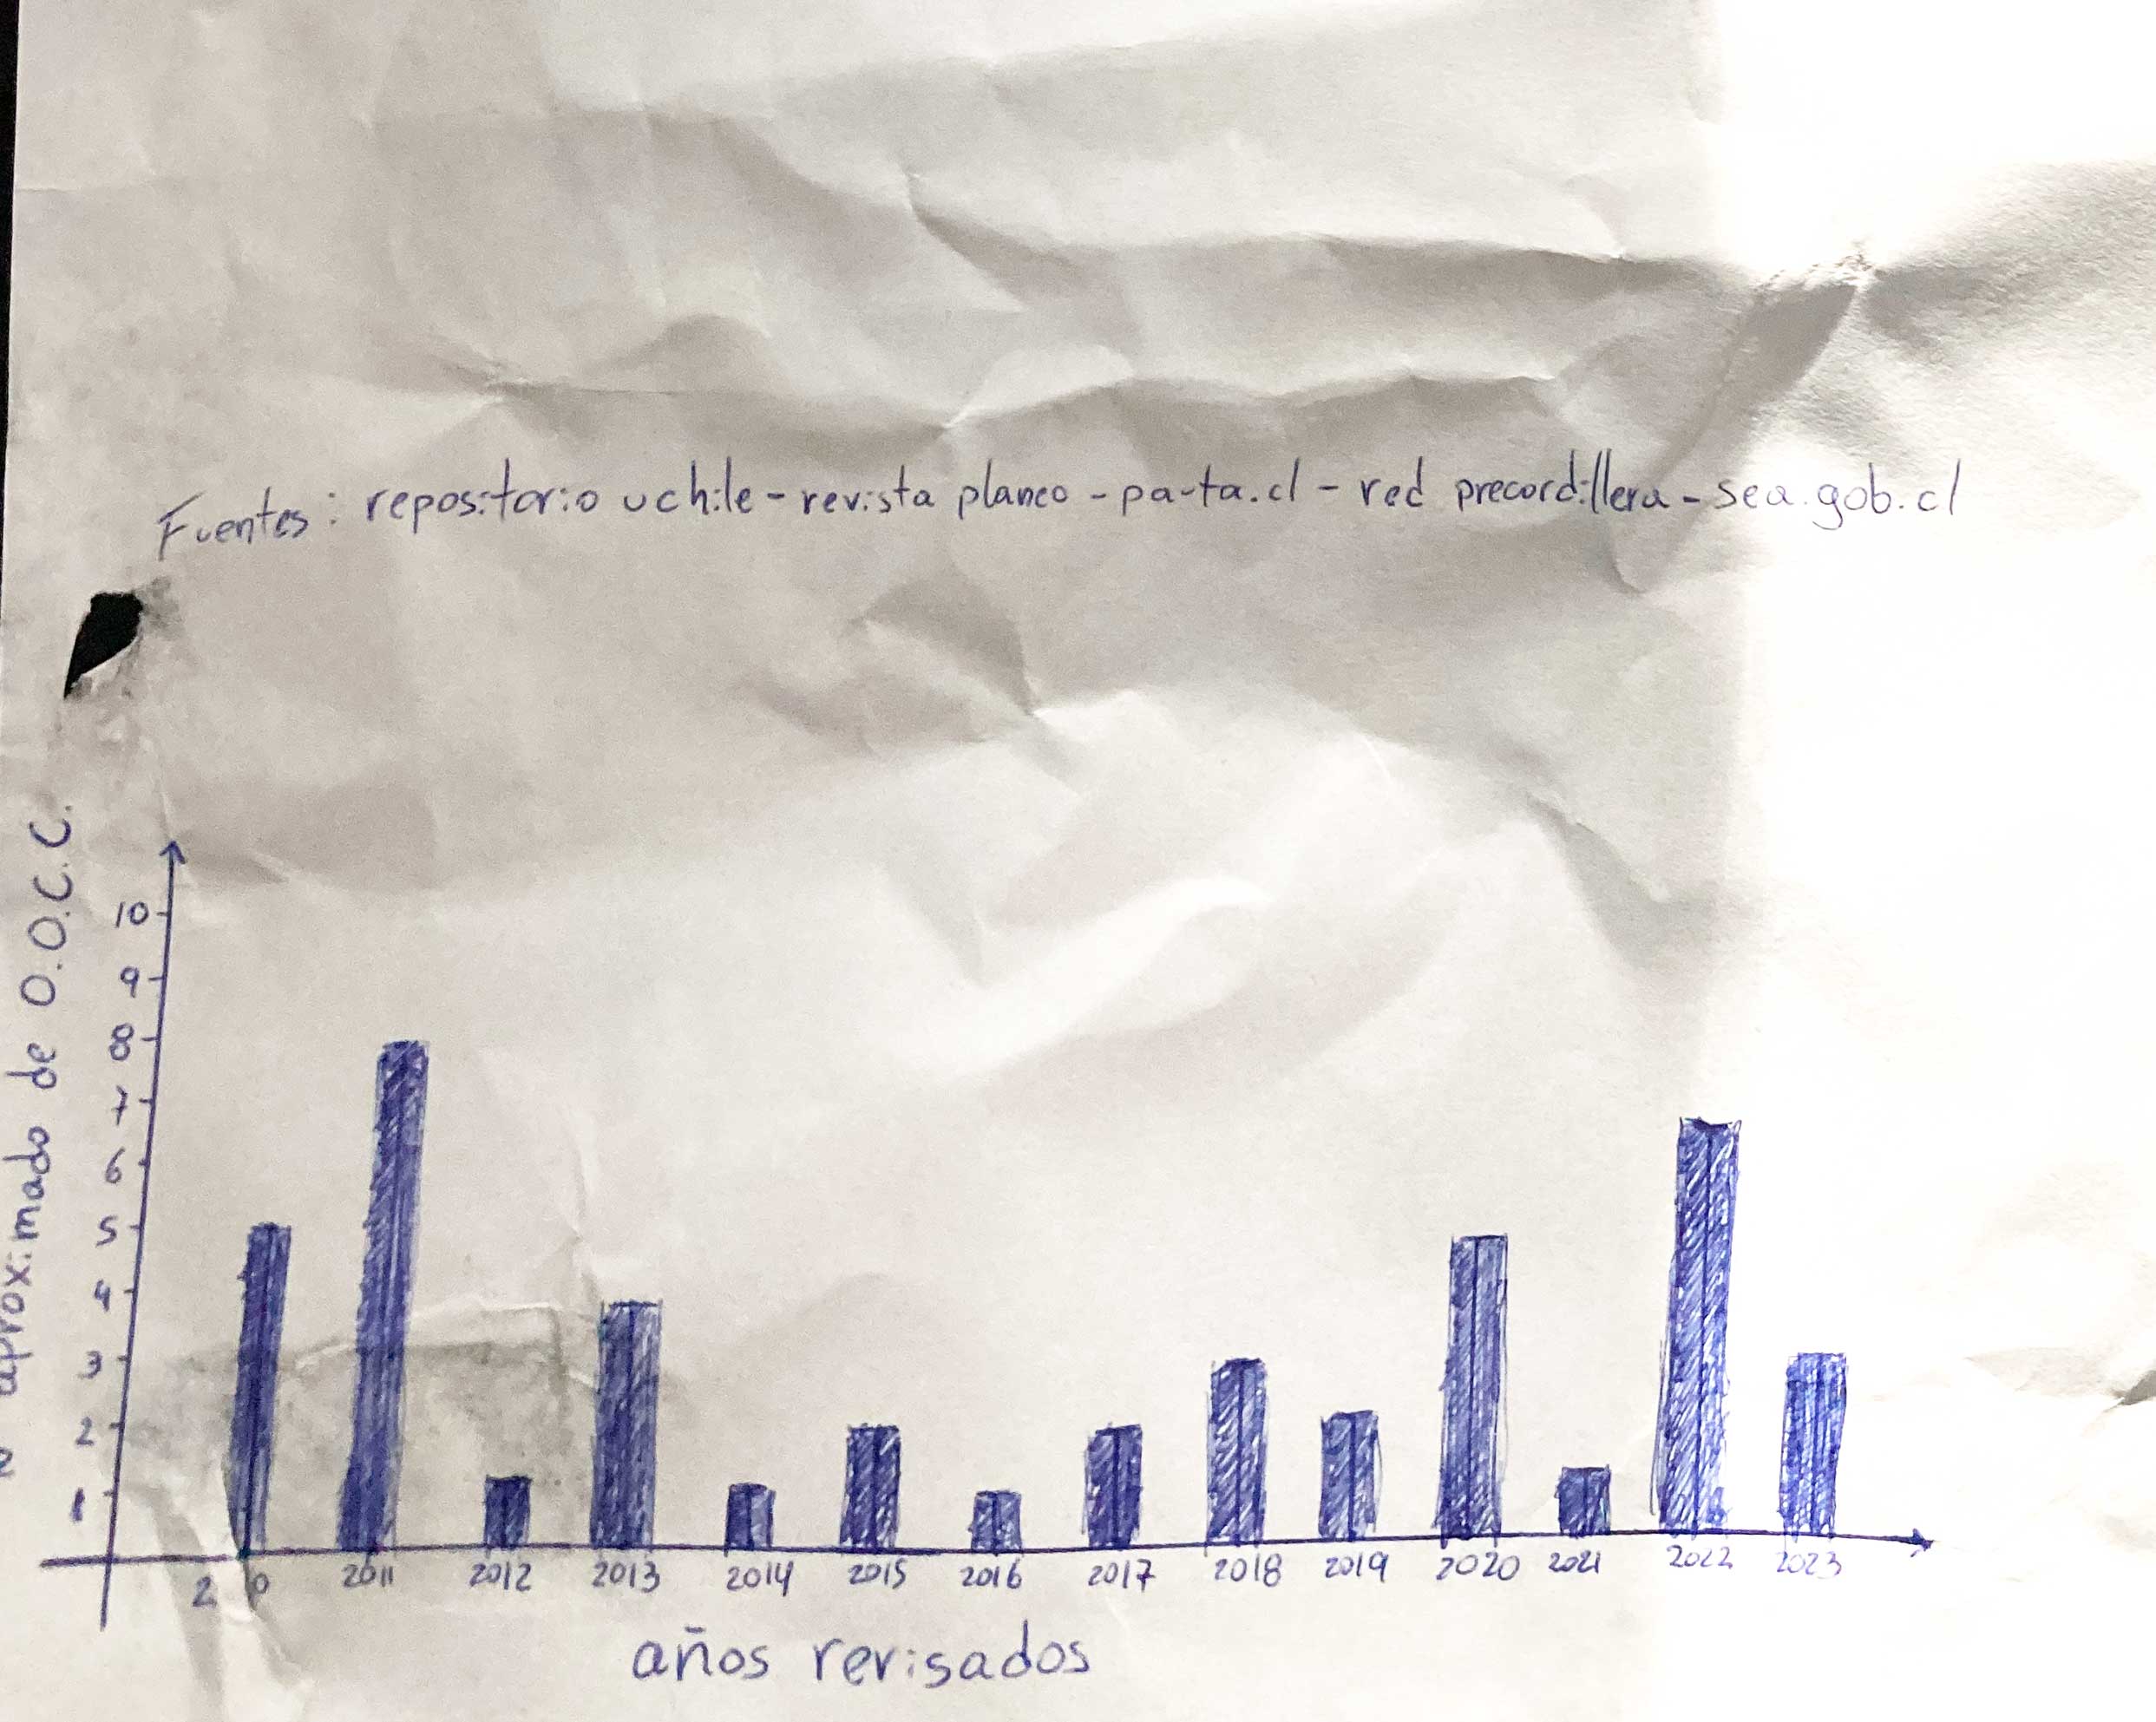 Fuentes: repositorio uchile - revista planeo - pa-ta.cl - red precordillera - sea.gob.cl
aproximado de O.O.C.C.
10
9
8
7
6
5
4
3
2
1
2011 2012 2013 2014 2015 2016 2017 2018 2019 2020 2021 2022 2023
años revisados